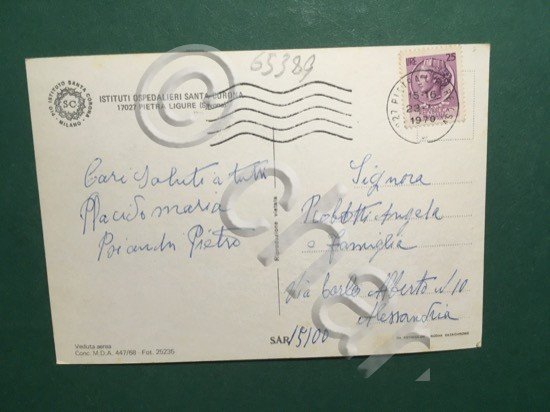 65389
ISTITUTI OSPEDALIERI SANTA CORONA
17027 PIETRA LIGURE (Savona)
PIO ISTITUTO SANTA CORONA
SC
MILANO
LIRE 25
15-19
1970
Cari saluti a tutti
Placido Maria
Pietro
Signora
Angela
e Famiglia
Via Carlo Alberto N 10
Alessandria
Riproduzione vietata
SAR/15100
Veduta aerea
Conc. M.D.A. 447/68 Fot. 25235